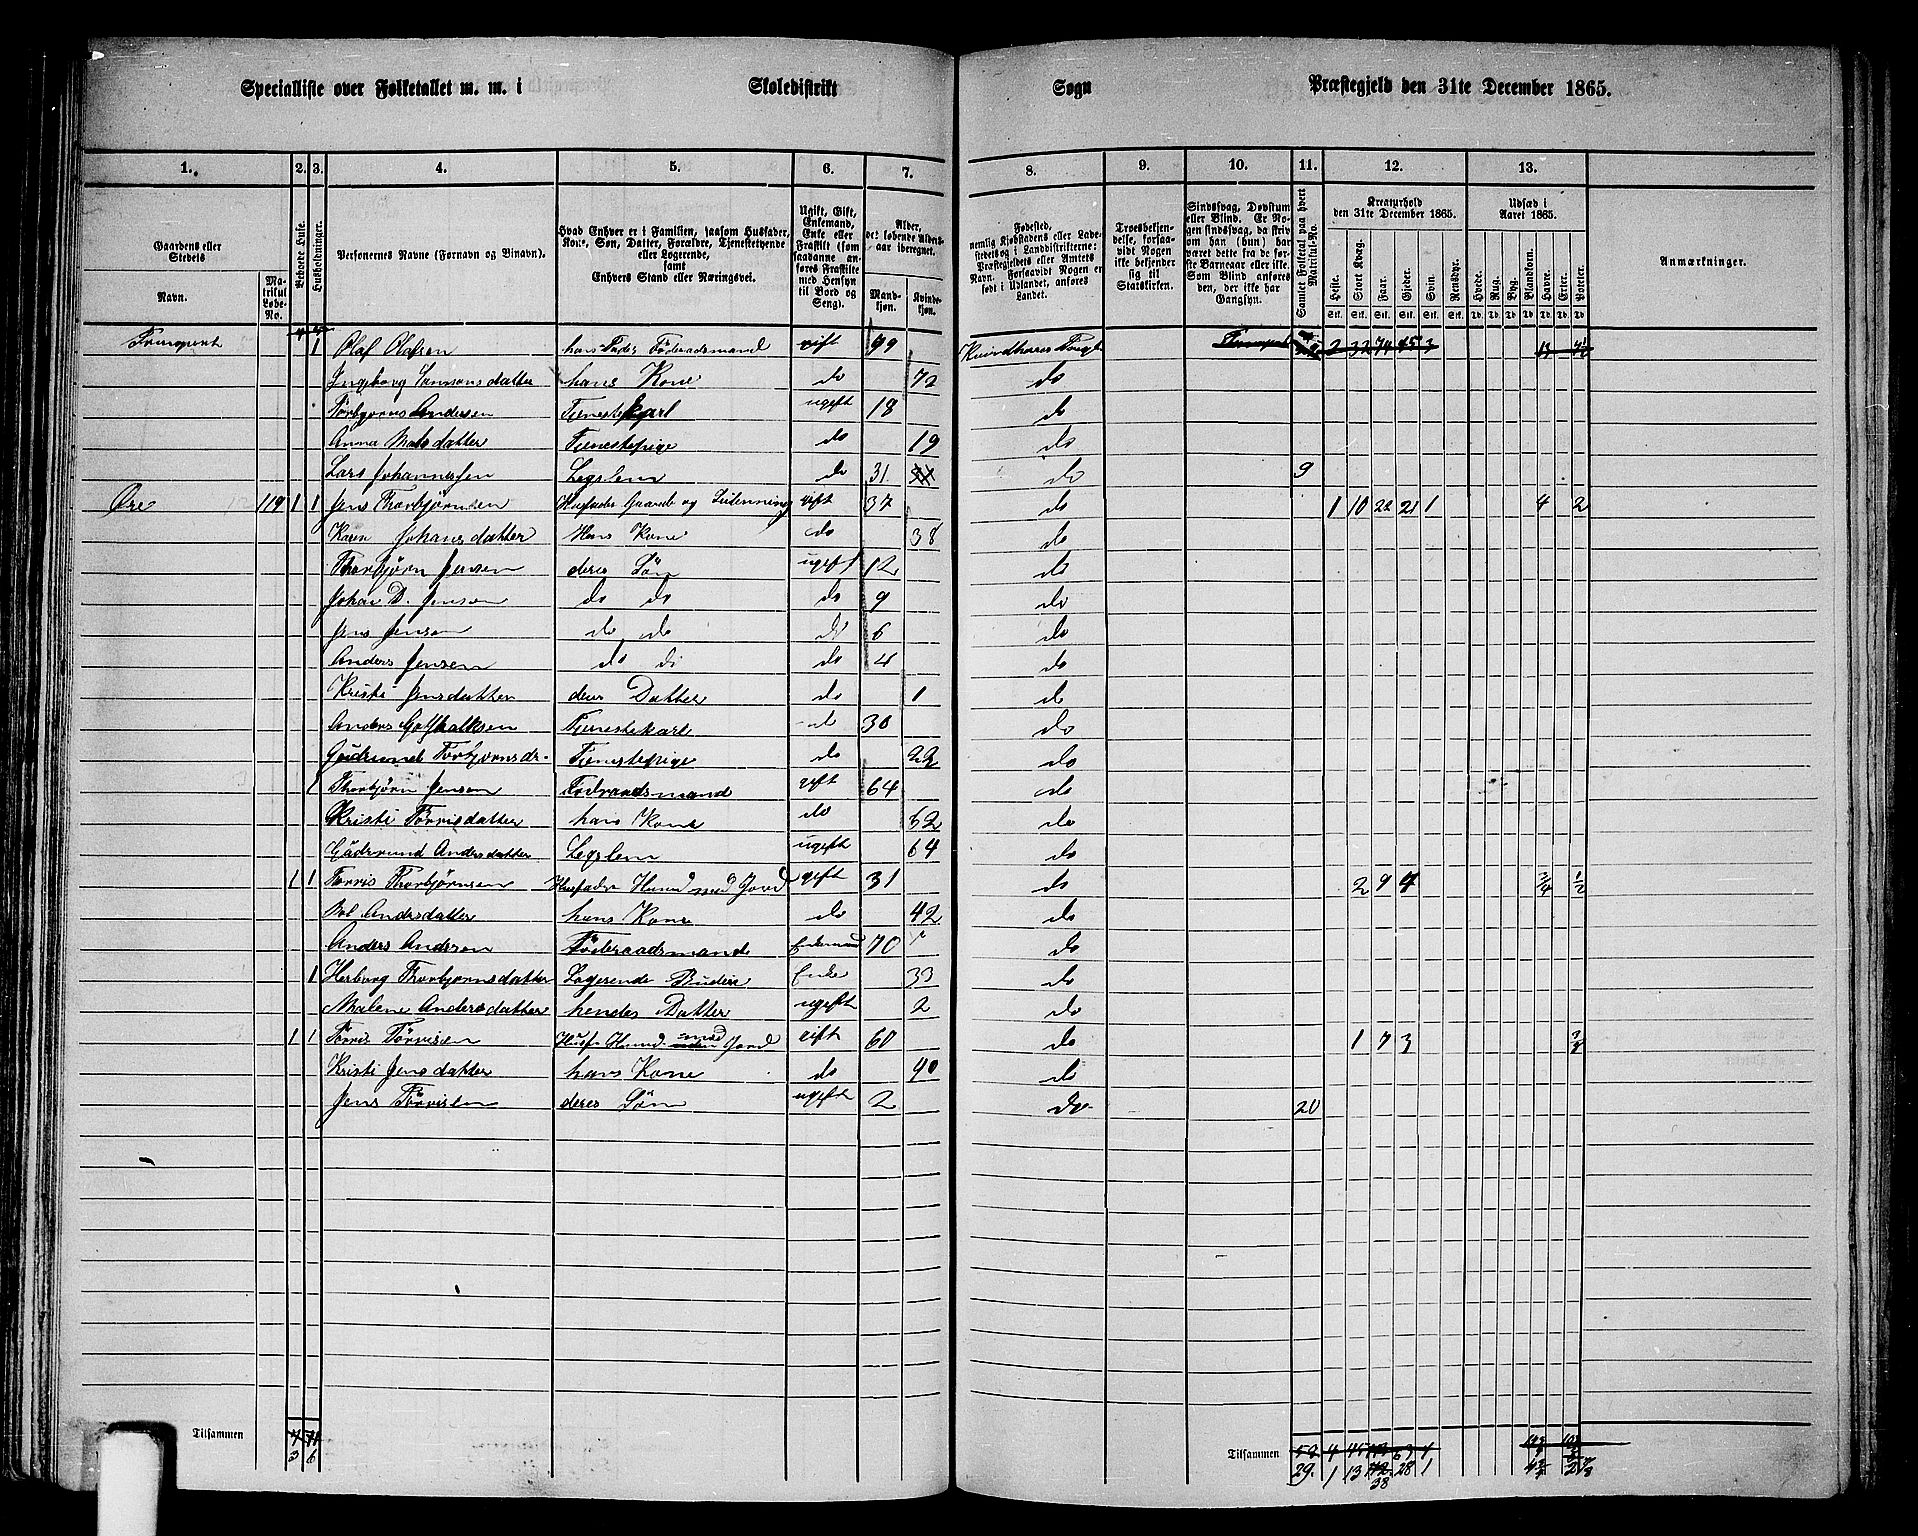 Specialliste over Folketallet m. m. i Skoledistrikt Sogn Præstegjeld den 31te December 1865.
1. 2. 3. 4. 5. 6. 7. 8. 9. 10. 11. 12. 13.
Gaardens eller Stedets
Navn.
Matrikul Løbe-No.
Beboede Huse.
Husholdninger.
Personernes Navne (Fornavn og Binavn).
Hvad Enhver er i Familien, saasom Husfader, Kone, Søn, Datter, Forældre, Tjenestetyende eller Logerende, samt Enhvers Stand eller Næringsvei.
Ugift, Gift, Enkemand, Enke eller Fraskilt (som saadanne anføres Fraskilte med Hensyn til Bord og Seng).
Alder, det løbende Alders-aar iberegnet.
Mandkjøn.
Kvindekjøn.
Fødested, nemlig Kjøbstadens eller Ladestedets og i Landdistrikterne: Præstegjeldets eller Amtets Navn. Forsaavidt Nogen er født i Udlandet, anføres Landet.
Troesbekjendelse, forsaavidt Nogen ikke bekjender sig til Statskirken.
Sindssvag, Døvstum eller Blind. Er Nogen sindssvag, da skriv om han (hun) har været dette fra de første Barneaar eller ikke. Som Blind anføres den, der ikke har Gangsyn.
Samlet Folketal paa hvert Matrikul-No.
Kreaturhold den 31te December 1865.
Heste. Stort Kvæg. Faar. Gjeder. Svin. Rensdyr.
Udsæd i Aaret 1865.
Hvede. Rug. Byg. Blandkorn. Havre. Erter. Poteter.
Anmærkninger.
Transport 1 Olaf Olafsen hans Fader Föderaadsmand gift Kvindherreds Præstgj Transport 2 32 74 45 3
Ingeborg Tonsonsdatter hans Kone do 72 do
Torbjorns Andersen Tjenestekarl ugift 18 do
Anna Matsdatter Tjenestepige do 19 do
Lars Johannessen Legslem do 31 do 9
Øre 119 1 1 Jens Thorbjørnsen Husfader Gaardb og gift 37 do 1 10 22 21 1 4 2
Karen Johansdatter Hans Kone do 38 do
Thorbjørn Jensen deres Søn ugift 12 do
Johan D. Jensen do do do 9 do
Jens Jensen do do do 6 do
Anders Jensen do do do 4 do
Kristi Jensdatter deres Datter do 1 do
Anders Gotskalksen Tjenestekarl do 30 do
Gudrund Torbjornsdr. Tjenestepige do 22 do
1 Thorbjørn Jensen Föderaadsmand gift 64 do
Kristi Törrisdatter hans Kone do 62 do
Gudrund Andersdatter Legslem ugift 64 do
1 1 Törris Thorbjørnsen Husfader Husmd med Jord gift 31 do 2 9 4 3/4 1/2
Andersdatter hans Kone do 42 do
Anders Andersen Föderaadsmand Enkemand 70 do
1 Herborg Thorbjornsdatter Logerende Budeie Enke 33 do
Malene Andersdatter hendes Datter ugift 2 do
1 1 Törris Törrisen Husf. Husmd med Jord gift 60 do 1 7 3 3/8
Kristi Jensdatter hans Kone do 40 do
Jens Törrisen deres Søn ugift 2 do 20
Tilsammen
3 6
Tilsammen
29. 1 13 38 28 1